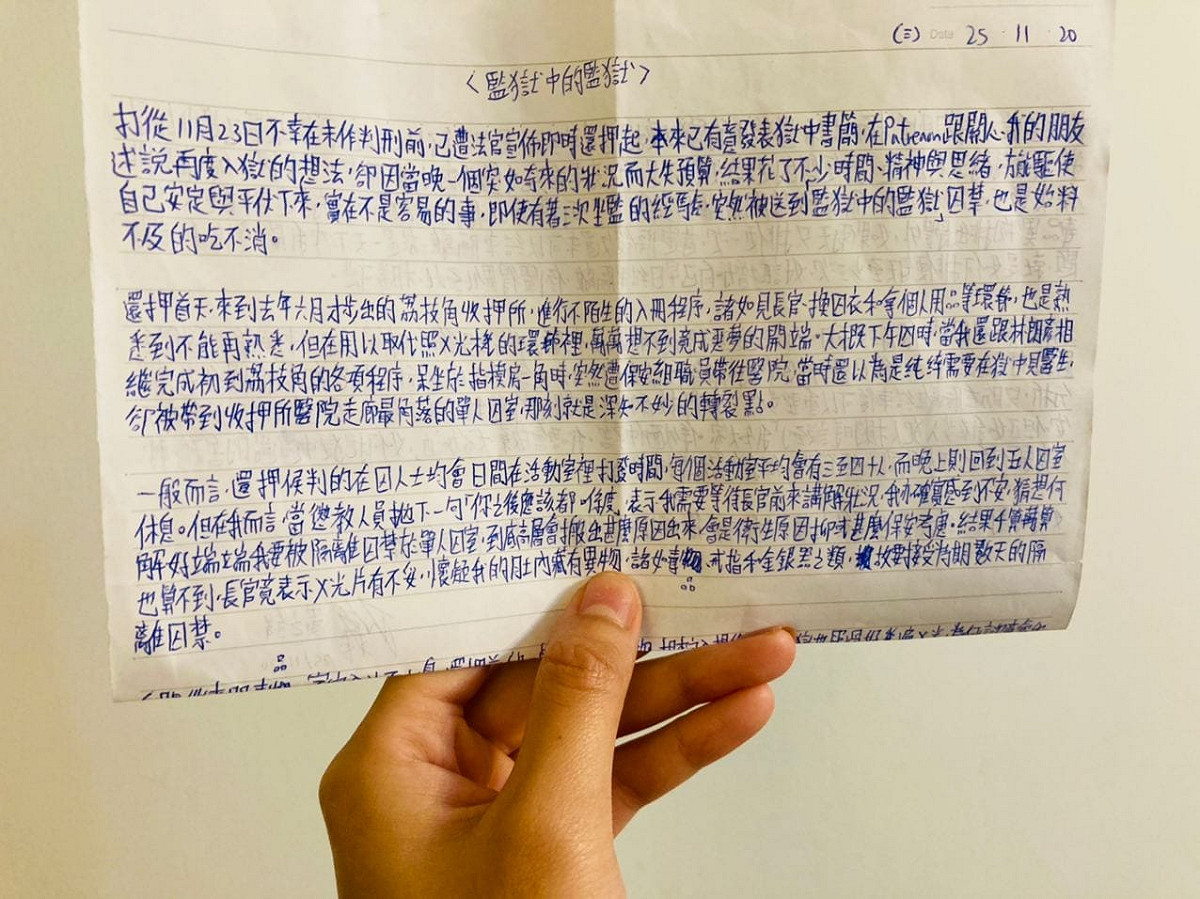 (三) Date 25 · 11 · 20
〈監獄中的監獄〉
打從11月23日不幸在未作判刑前,已遭法官宣佈即時還押起,本來已有意發表獄中書簡,在Patreon跟關心我的朋友
述說再度入獄的想法,卻因當晚一個突如奇來的狀況而大失預算,結果花了不少時間、精神與思緒,方能驅使
自己安定與平伏下來,實在不是容易的事,即使有著三次坐監的經驗,突然被送到「監獄中的監獄」囚禁,也是始料
不及的吃不消。
還押首天,來到去年六月才步出的荔枝角收押所,進行不陌生的入冊程序,諸如見長官、換囚衣和拿個人用品等環節,也是熟
悉到不能再熟悉,但在用以取代照X光機的環節裡,萬萬想不到竟成惡夢的開端。大概下午四時,當我還跟林朗彥相
繼完成初到荔枝角的各項程序,呆坐於指模房一角時,突然遭保安組職員帶往醫院,當時還以為是純綷需要在獄中見醫生,
卻被帶到收押所醫院走廊最角落的單人囚室,那刻就是深知不妙的轉裂點。
一般而言,還押候判的在囚人士均會日間在活動室裡打發時間,每個活動室平均會有三至四十人,而晚上則回到五人囚室
休息。但在我而言,當懲教人員拋下一句「你之後應該都係度」,表示我需要等待長官前來講解狀況,我亦確實感到不安,猜想何
解好端端我要被隔離囚禁於單人囚室,到底高層會搬出甚麼原因出來,會是衛生原因抑或甚麼保安考慮,結果千算萬算
也算不到,長官竟表示X光片有不妥,懷疑我的肚內藏有異物,諸如毒品、戒指和金銀器之類,故要接受為期數天的隔
離囚禁。